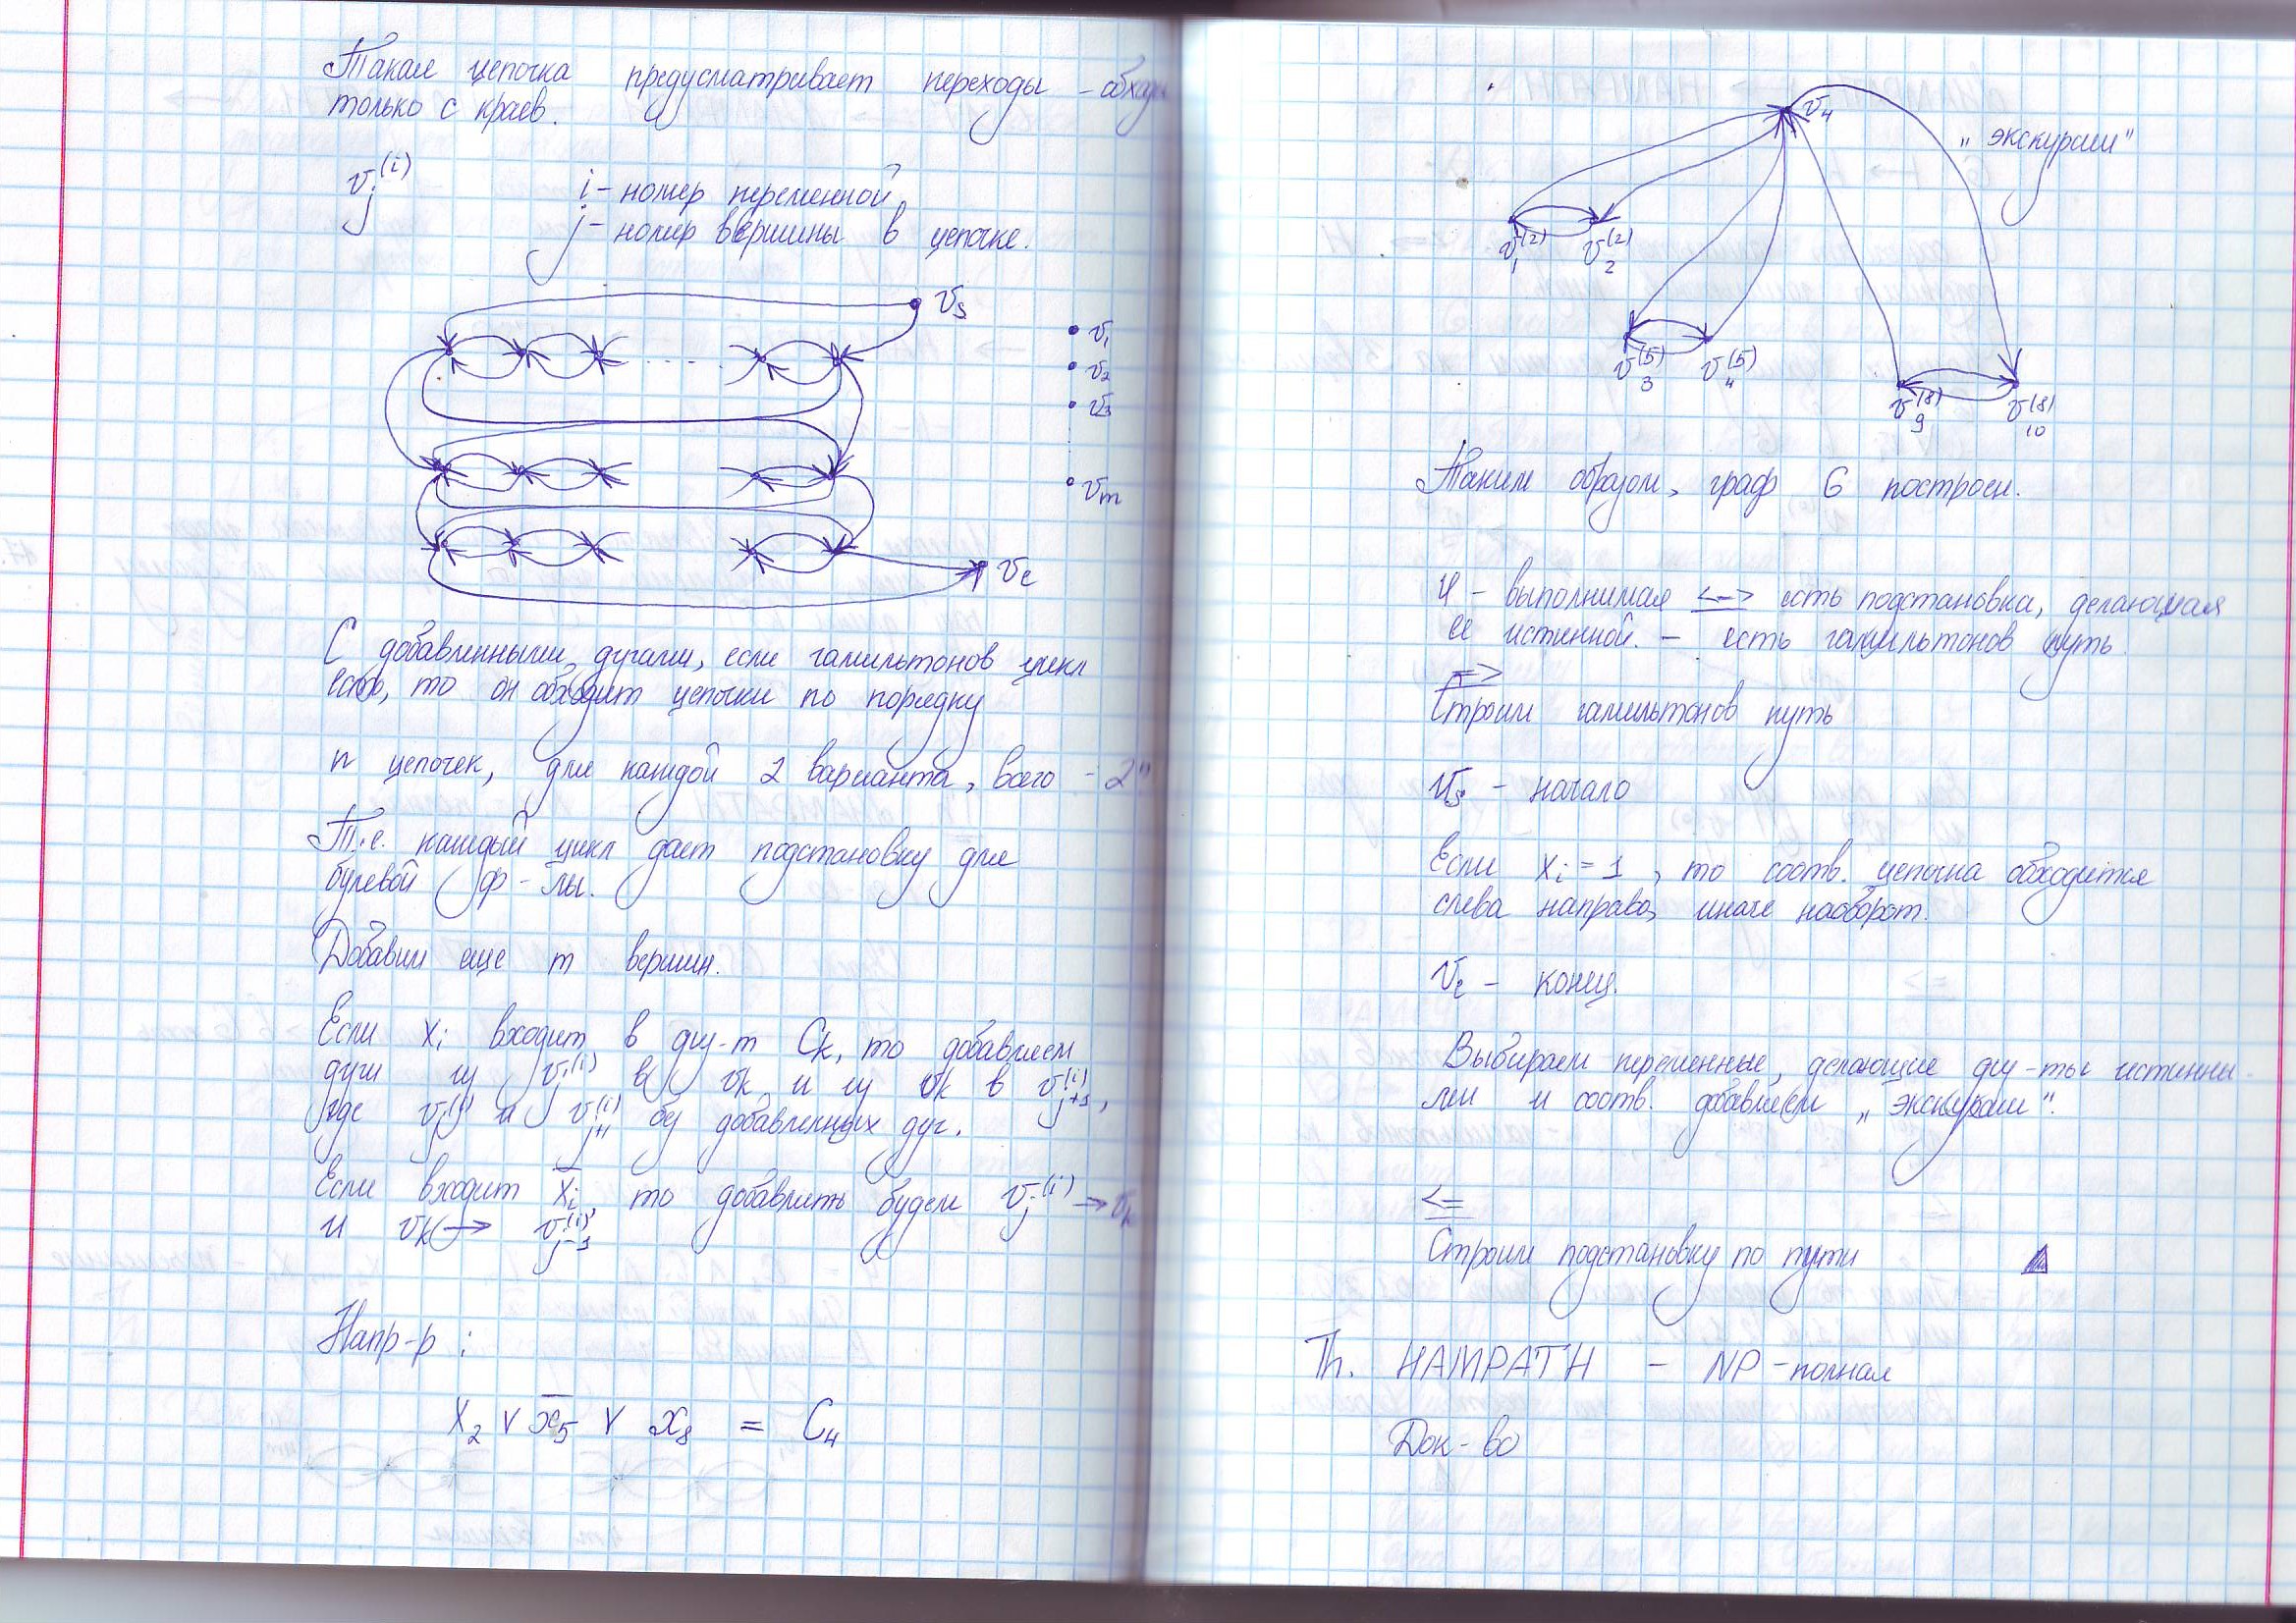 Такая цепочка предусматривает переходы - обходы
только с краев.
v_j^(i)
i - номер переменной,
j - номер вершины в цепочке.
v_s
v_1
v_2
v_3
v_m
v_e
С добавленными дугами, если гамильтонов цикл
есть, то он обходит цепочки по порядку
n цепочек, для каждой 2 варианта, всего - 2^n
Т.е. каждый цикл дает подстановку для
булевой ф-лы.
Добавим еще m вершин.
Если x_i входит в диз-т C_k, то добавляем
дуги из v_j^(i) в v_k и из v_k в v_{j+1}^(i),
где v_j^(i) и v_{j+1}^(i) без добавленных дуг.
Если входит x̄_i, то добавлять будем v_j^(i) → v_k
и v_k → v_{j-1}^(i)
Напр-р:
x_2 ∨ x̄_5 ∨ x_8 = C_4
v_4
„экскурсии"
v_1^(2) v_2^(2)
v_3^(5) v_4^(5)
v_9^(8) v_10^(8)
Таким образом, граф G построен.
φ - выполнимая <=> есть подстановка, делающая
ее истинной. - есть гамильтонов путь
=>
Строим гамильтонов путь
v_s - начало
Если x_i = 1, то соотв. цепочка обходится
слева направо, иначе наоборот.
v_e - конец.
Выбираем переменные, делающие диз-ты истинны-
ми и соотв. добавляем „экскурсии".
<=
Строим подстановку по пути
Th. HAMPATH - NP-полная
Док-во